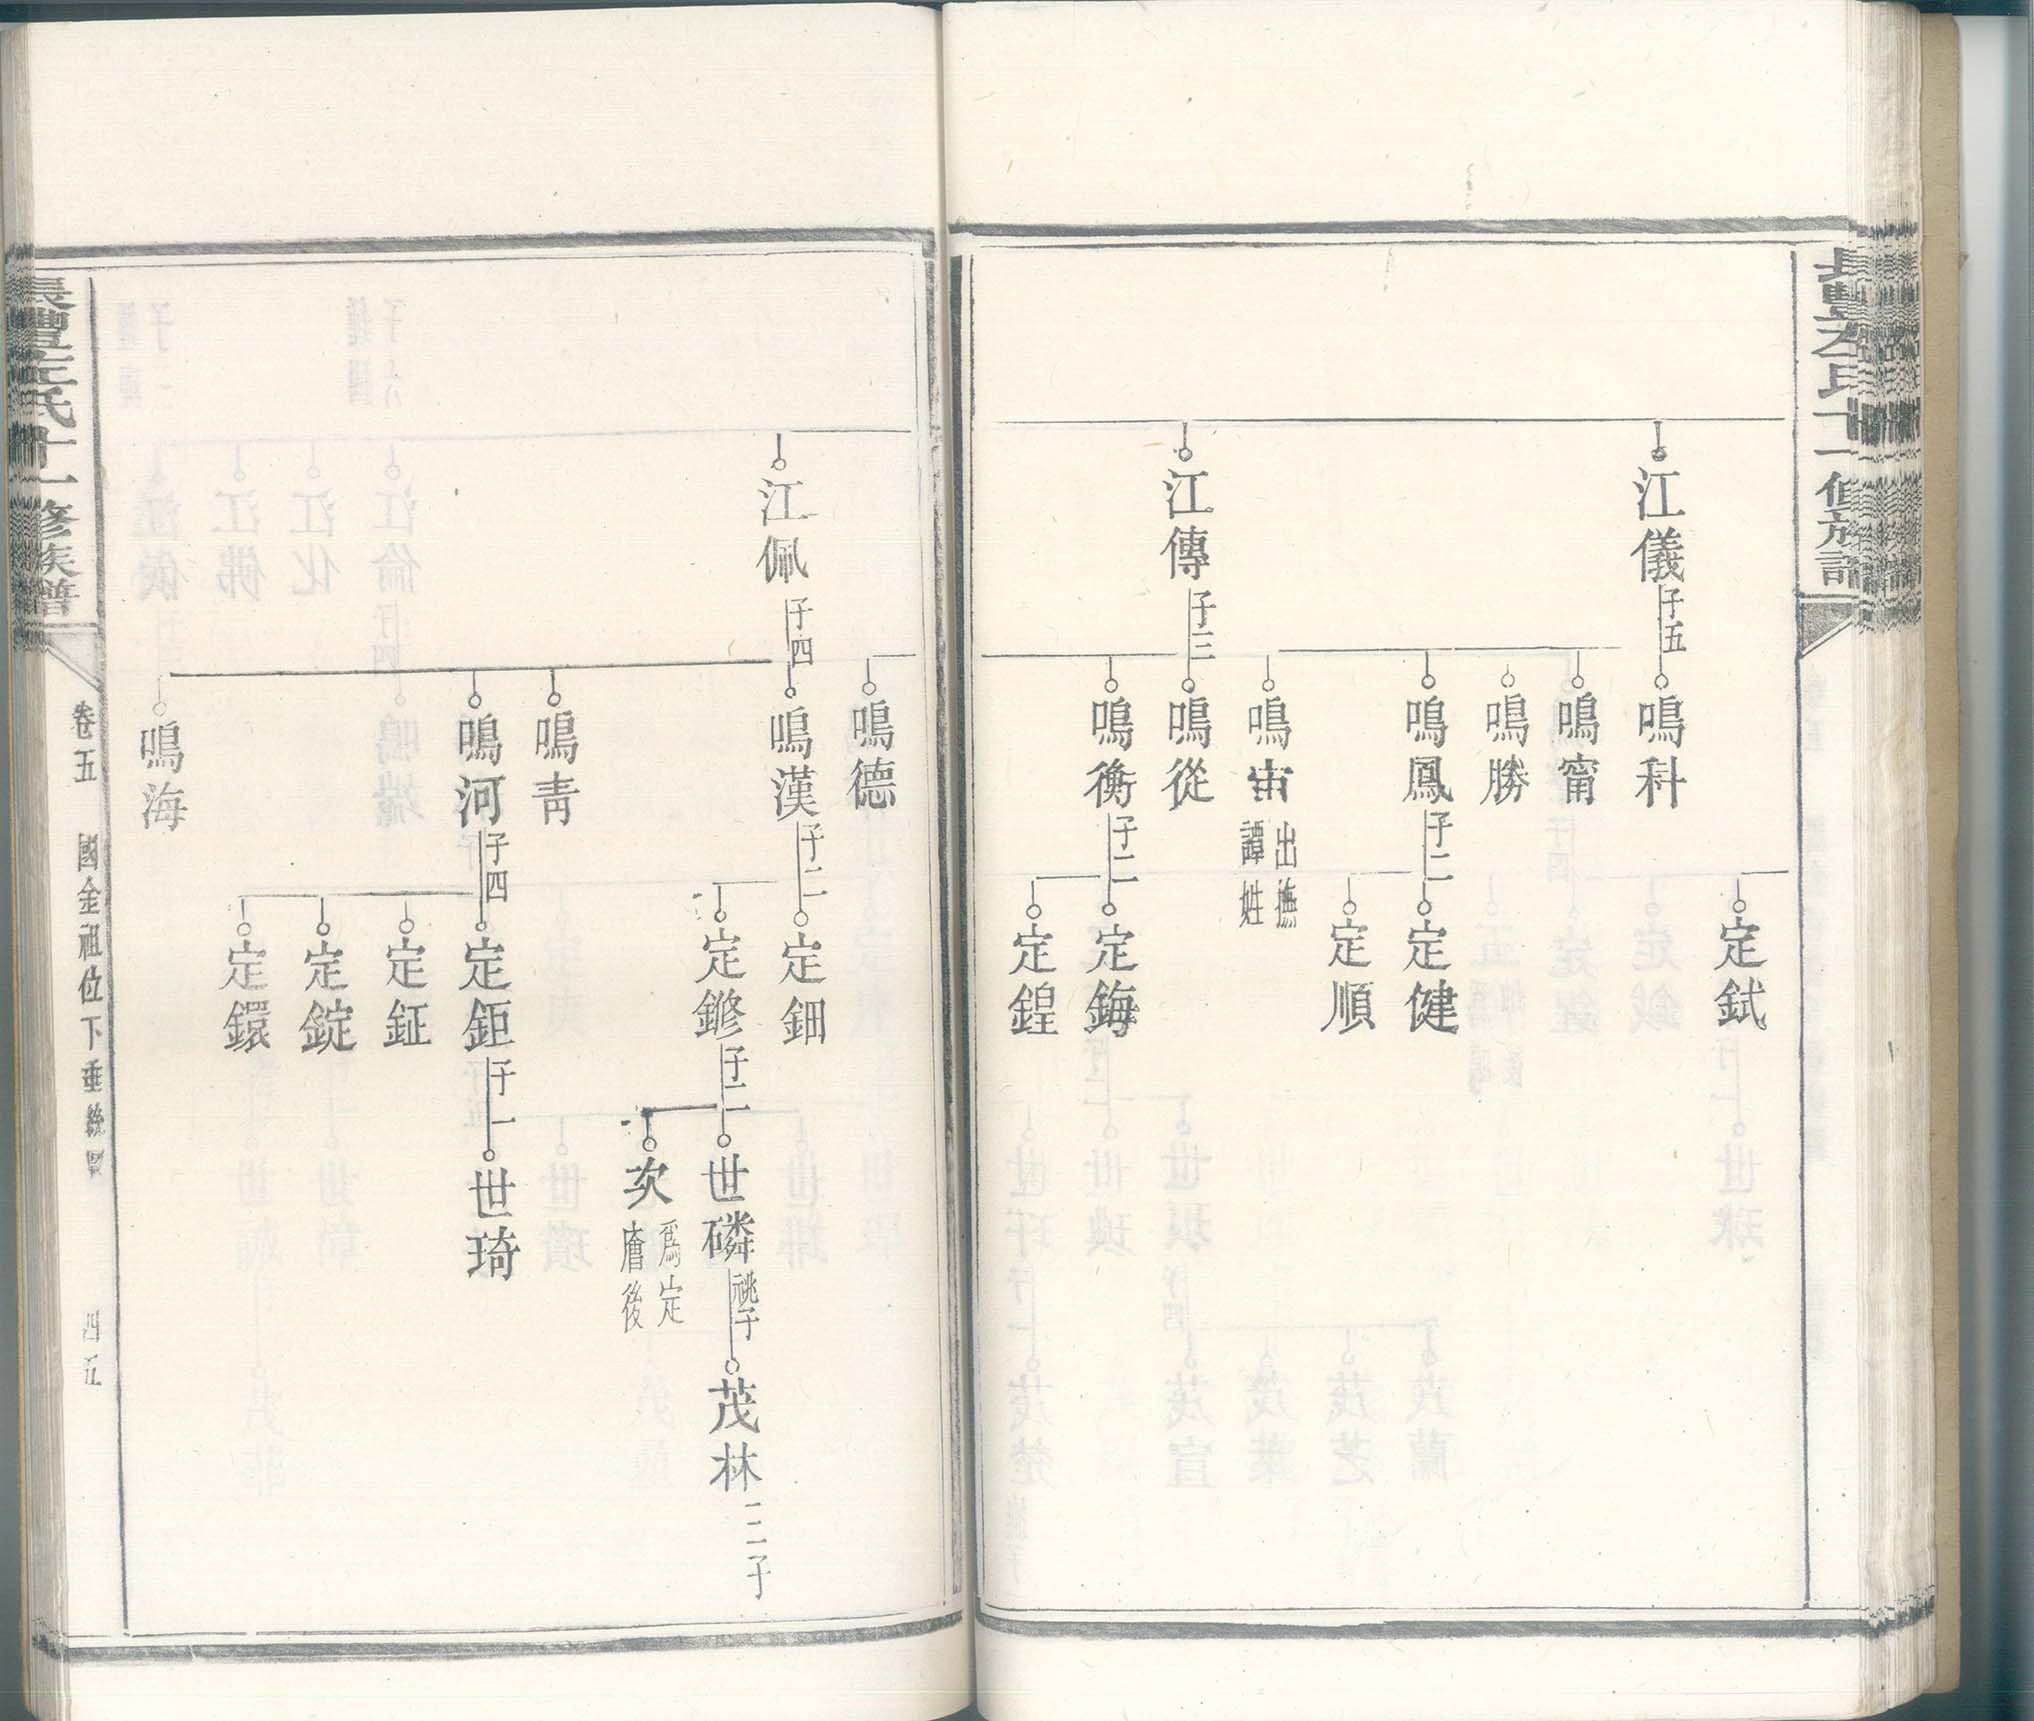 江儀
子五
鳴科
鳴甯
鳴勝
鳴鳳
子二
鳴宙
出撫
譚姓
定鉽
定健
定順
江傳
子三
鳴從
鳴衡
子二
鳴德
定鋂
定鍠
江佩
子四
鳴漢
子二
鳴青
鳴河
子四
鳴海
定鈿
定鏒
子二
定鉅
子一
定鉦
定錠
定鐶
世磷
祧子
次
爲定
後
世琦
茂林
一二子
氏十一修族譜
卷五
國金祖位下垂絲圖
四五